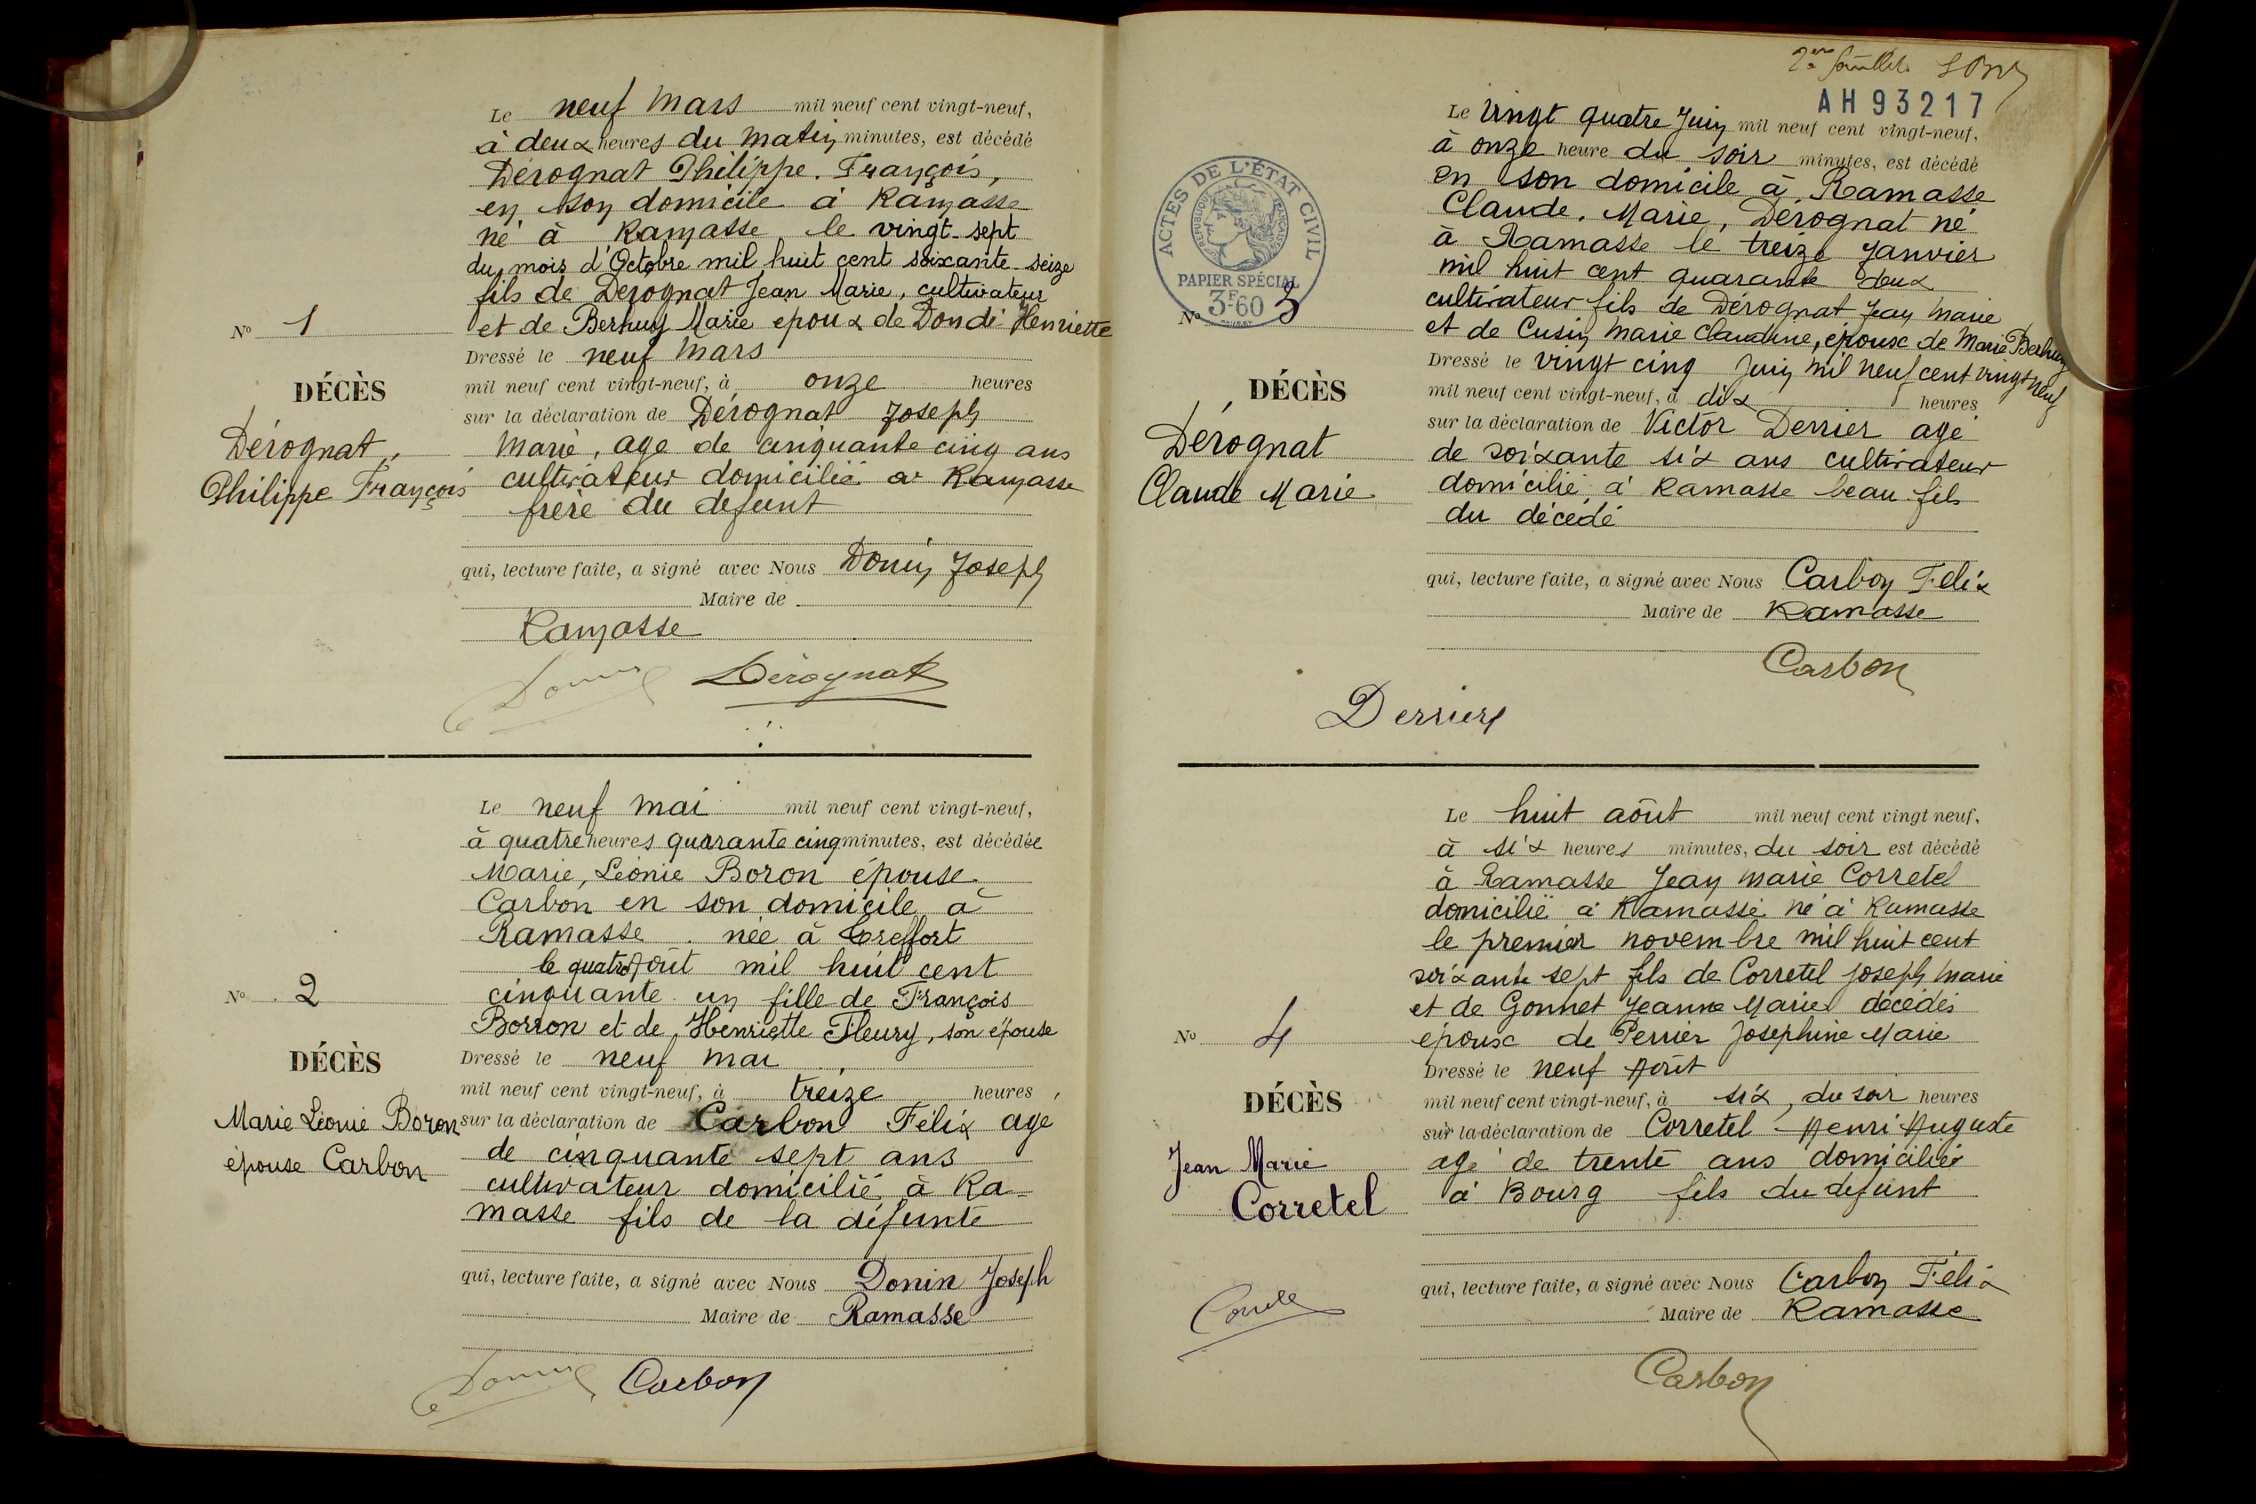 Le neuf Mars mil neuf cent vingt-neuf,
à deux heures du matin minutes, est décédé
Dérognat Philippe. François,
en son domicile à Ramasse
né à Ramasse le vingt-sept
du mois d'Octobre mil huit cent soixante-seize
fils de Dérognat Jean Marie, cultivateur
et de Berhuy Marie epoux de Dondé Henriette
No 1
Dressé le neuf Mars
mil neuf cent vingt-neuf, à onze heures
DÉCÈS
sur la déclaration de Dérognat Joseph
Dérognat
Marie, age de cinquante cinq ans
Philippe François
cultivateur domicilié a Ramasse
frère du defunt
qui, lecture faite, a signé avec Nous Donin Joseph
Maire de
Ramasse
Donin Dérognat
Le neuf mai mil neuf cent vingt-neuf,
à quatre heures quarante cinq minutes, est décédée
Marie, Léonie Boron épouse
Carbon en son domicile à
Ramasse. née à Treffort
le quatre Août mil huit cent
No 2
cinquante un fille de François
Borron et de Henriette Fleury, son épouse
DÉCÈS
Dressé le neuf mai
mil neuf cent vingt-neuf, à treize heures
Marie Léonie Boron
sur la déclaration de Carbon Félix age
épouse Carbon
de cinquante sept ans
cultivateur domicilié à Ra-
masse fils de la défunte
qui, lecture faite, a signé avec Nous Donin Joseph
Maire de Ramasse
Donin Carbon
2e feuillet
AH 93217
Le Vingt quatre Juin mil neuf cent vingt-neuf,
à onze heure du soir minutes, est décédé
en son domicile à Ramasse
Claude. Marie, Dérognat né
à Ramasse le treize Janvier
mil huit cent quarante deux
cultivateur fils de Dérognat Jean Marie
et de Cusin Marie Claudine, épouse de Marie Berhuy
ACTES DE L'ÉTAT CIVIL
RÉPUBLIQUE FRANÇAISE
PAPIER SPÉCIAL
3F60
No 3
Dressé le vingt cinq Juin mil neuf cent vingt neuf
DÉCÈS
mil neuf cent vingt-neuf, à dix heures
sur la déclaration de Victor Derrier agé
Dérognat
de soixante six ans cultivateur
Claude Marie
domicilié à Ramasse beau-fils
du décédé
qui, lecture faite, a signé avec Nous Carbon Félix
Maire de Ramasse
Carbon
Derrier
Le huit août mil neuf cent vingt neuf,
à six heures minutes, du soir est décédé
à Ramasse Jean Marie Corretel
domicilié à Ramasse né à Ramasse
le premier novembre mil huit cent
soixante sept fils de Corretel Joseph Marie
et de Gonnet Jeanne Marie décédés
No 4
épouse de Perrier Josephine Marie
Dressé le neuf Août
DÉCÈS
mil neuf cent vingt-neuf, à six, du soir heures
sur la déclaration de Corretel Henri Auguste
Jean Marie
agé de trente ans domicilié
Corretel
à Bourg fils du défunt
qui, lecture faite, a signé avec Nous Carbon Félix
Maire de Ramasse
Carbon